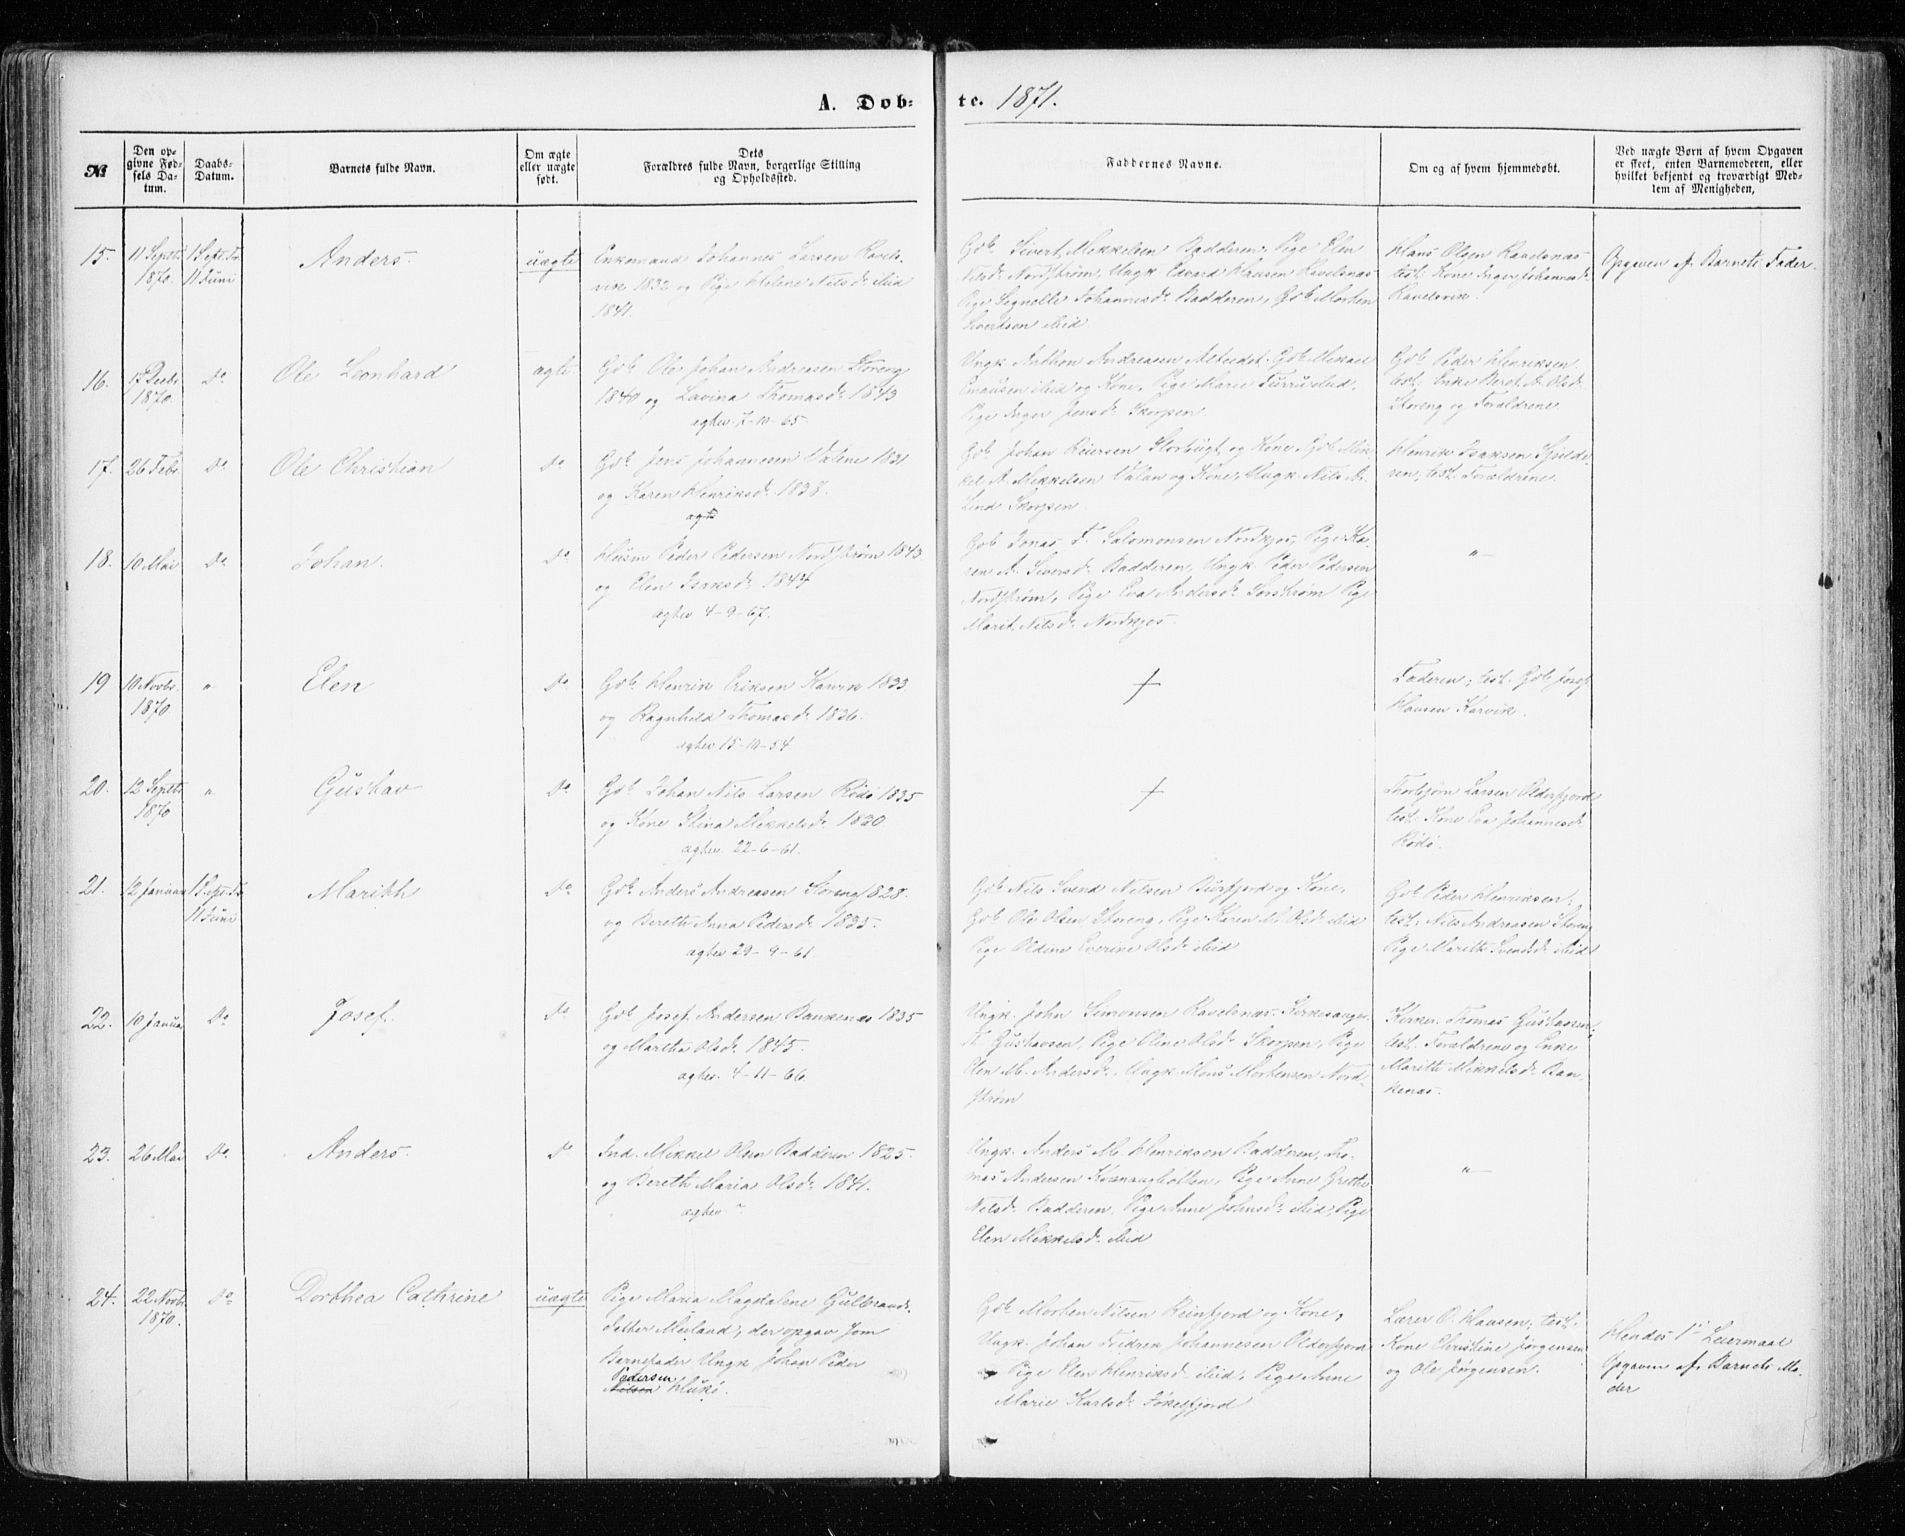 A. Døb-
te. 1871.
№
Den op-
givne Fød-
sels Da-
tum.
Daabs-
Datum.
Barnets fulde Navn.
Om ægte
eller uægte
født.
Dets
Forældres fulde Navn, borgerlige Stilling
og Opholdssted.
Faddernes Navne.
Om og af hvem hjemmedøbt.
Ved uægte Børn af hvem Opgaven
er skeet, enten Barnemoderen, eller
hvilket bekjendt og troværdigt Med-
lem af Menigheden,
15.
11 Septb.
1870.
1 S. ept. Tr.
11 Juni
Anders.
uægte
Enkemand Johannes Larsen Kavels-
vik 1832 og Pige Helene Nilsd. ibid
1841.
Gdb Sivert Mikkelsen Badderen, Pige Elen
Nilsd. Nordstrøm, Ungk. Edvard Hansen Kavelsnæs
Pige Segnelle Johannesd. Badderen, Gdb Morten
Sivertsen ibid.
Hans Olsen Kavelsnæs
test. Kone Inger Johannesd.
Kavelsvik.
Opgaven af Barnets Fader.
16.
17 Decbr.
1870.
Do
Ole Leonhard
ægte
Gdb. Ole Johan Andreasen Storeng
1840 og Lavina Thomasd. 1843
ægtev 7-10-65.
Ungk Anthon Andreasen Alteidet. Gdb Mikael
ibid og Kone, Pige Marie ibid,
Pige Inger Jensd. Skorpen
Gdb Peder Henriksen,
test. Enke Beret A. Olsd.
Storeng og Forældrene
17.
26 Febr.
Do
Ole Christian
Do
Gdb. Jens Johannesen Valene 1831
og Karen Henriksd. 1838.
ægte
Gdb. Johan Storbugt og Kone, Gdb Mik-
kel A. Mikkelsen Valan og Kone, Ungk. Nils A.
Lind Skorpen
Henrik Isaksen Spilde-
ren, test. Forældrene.
18.
10 Mai
Do
Johan.
Do
Husm Peder Pedersen Nordstrøm 1843
og Elen Isaksd. 1844
ægtev 4-9-67.
Gdb Jonas F. Salomonsen Nordkjos, Pige Ka-
ren A. Siversd. Badderen, Ungk. Peder Pedersen
Nordstrøm, Pige Eva Andersd. Sørstrøm Pige
Marit Nilsd. Nordkjos.
"
19
10 Novbr.
1870.
"
Elen
Do
Gdb. Henrik Eriksen Karvik 1833
og Ragnhild Thomasd. 1836.
ægtev 15-10-54
+
Faderen; test. Gdb Josef
Hansen Karvik.
20.
12 Septbr
1870
"
Gustav
Do
Gdb. Johan Nils Larsen Rødø 1835
og Kone Stina Mikkelsd. 1820
ægtev. 22-6-61.
+
Thorbjørn Larsen Olderfjord
test. Kone Eva Johannesd.
Rødø.
21.
12 Januar
1 S. ept. Tr.
11 Juni
Marith
Do
Gdb. Anders Andreasen Storeng 1828.
og Bereth Anna Pedersd. 1835.
ægtev 29-9-61.
Gdb. Nils Svend Nilsen Burfjord og Kone,
Gdb. Ole Olsen Storeng, Pige Karen M. Olsd. ibid
Pige Oldine Everine Olsd. ibid
Gdb. Peder Henriksen,
test. Nils Andreasen Storeng
Pige Marith Svendsd. ibid
22.
10 Januar
Do
Josef.
Do
Gdb. Josef Andersen Bankenæs 1835
og Maretha Olsd. 1845.
ægtev. 4-11-66.
Ungk. John Simonsen Kavelsnæs. Kirkesanger
T. Gustavsen, Pige Oline Olsd. Skorpen, Pige
Elen M. Andersd. Ungk. Mons Mortensen Nord-
strøm
Kirkes. Thomas Gustavsen,
test. Forældrene og Enke
Marith Mikkelsd. Ban-
kenæs.
23.
26 Mai
Do
Anders.
Do
Ind. Mikkel Olsen Badderen 1825.
og Bereth Maria Olsd. 1841.
ægtev. "
Ungk. Anders M. Henriksen Badderen, Tho-
mas Andersen Kvænangbotten, Pige Anne Grethe
Nilsd. Badderen, Pige Anne Johnsd. ibid, Pige
Elen Mikkelsd. ibid
"
24.
22 Novbr.
1870.
Do
Dorthea Cathrine
uægte
Pige Maria Magdalene Gulbrands-
datter Meiland, der opgav som
Barnefader Ungk Johan Peder
Pedersen
Nilsen Hukø.
Gdb. Morten Nilsen Reinfjord og Kone,
Ungk. Johan Fredrik Johannesen Olderfjord
Pige Elen Henriksd. ibid, Pige Anne
Marie Karlsd. Jøkelfjord
Lærer O. Hansen; test.
Kone Christine Jørgensen
og Ole Jørgensen.
Hendes 1ste Leiermaal
Opgaven af Barnets Mo-
der